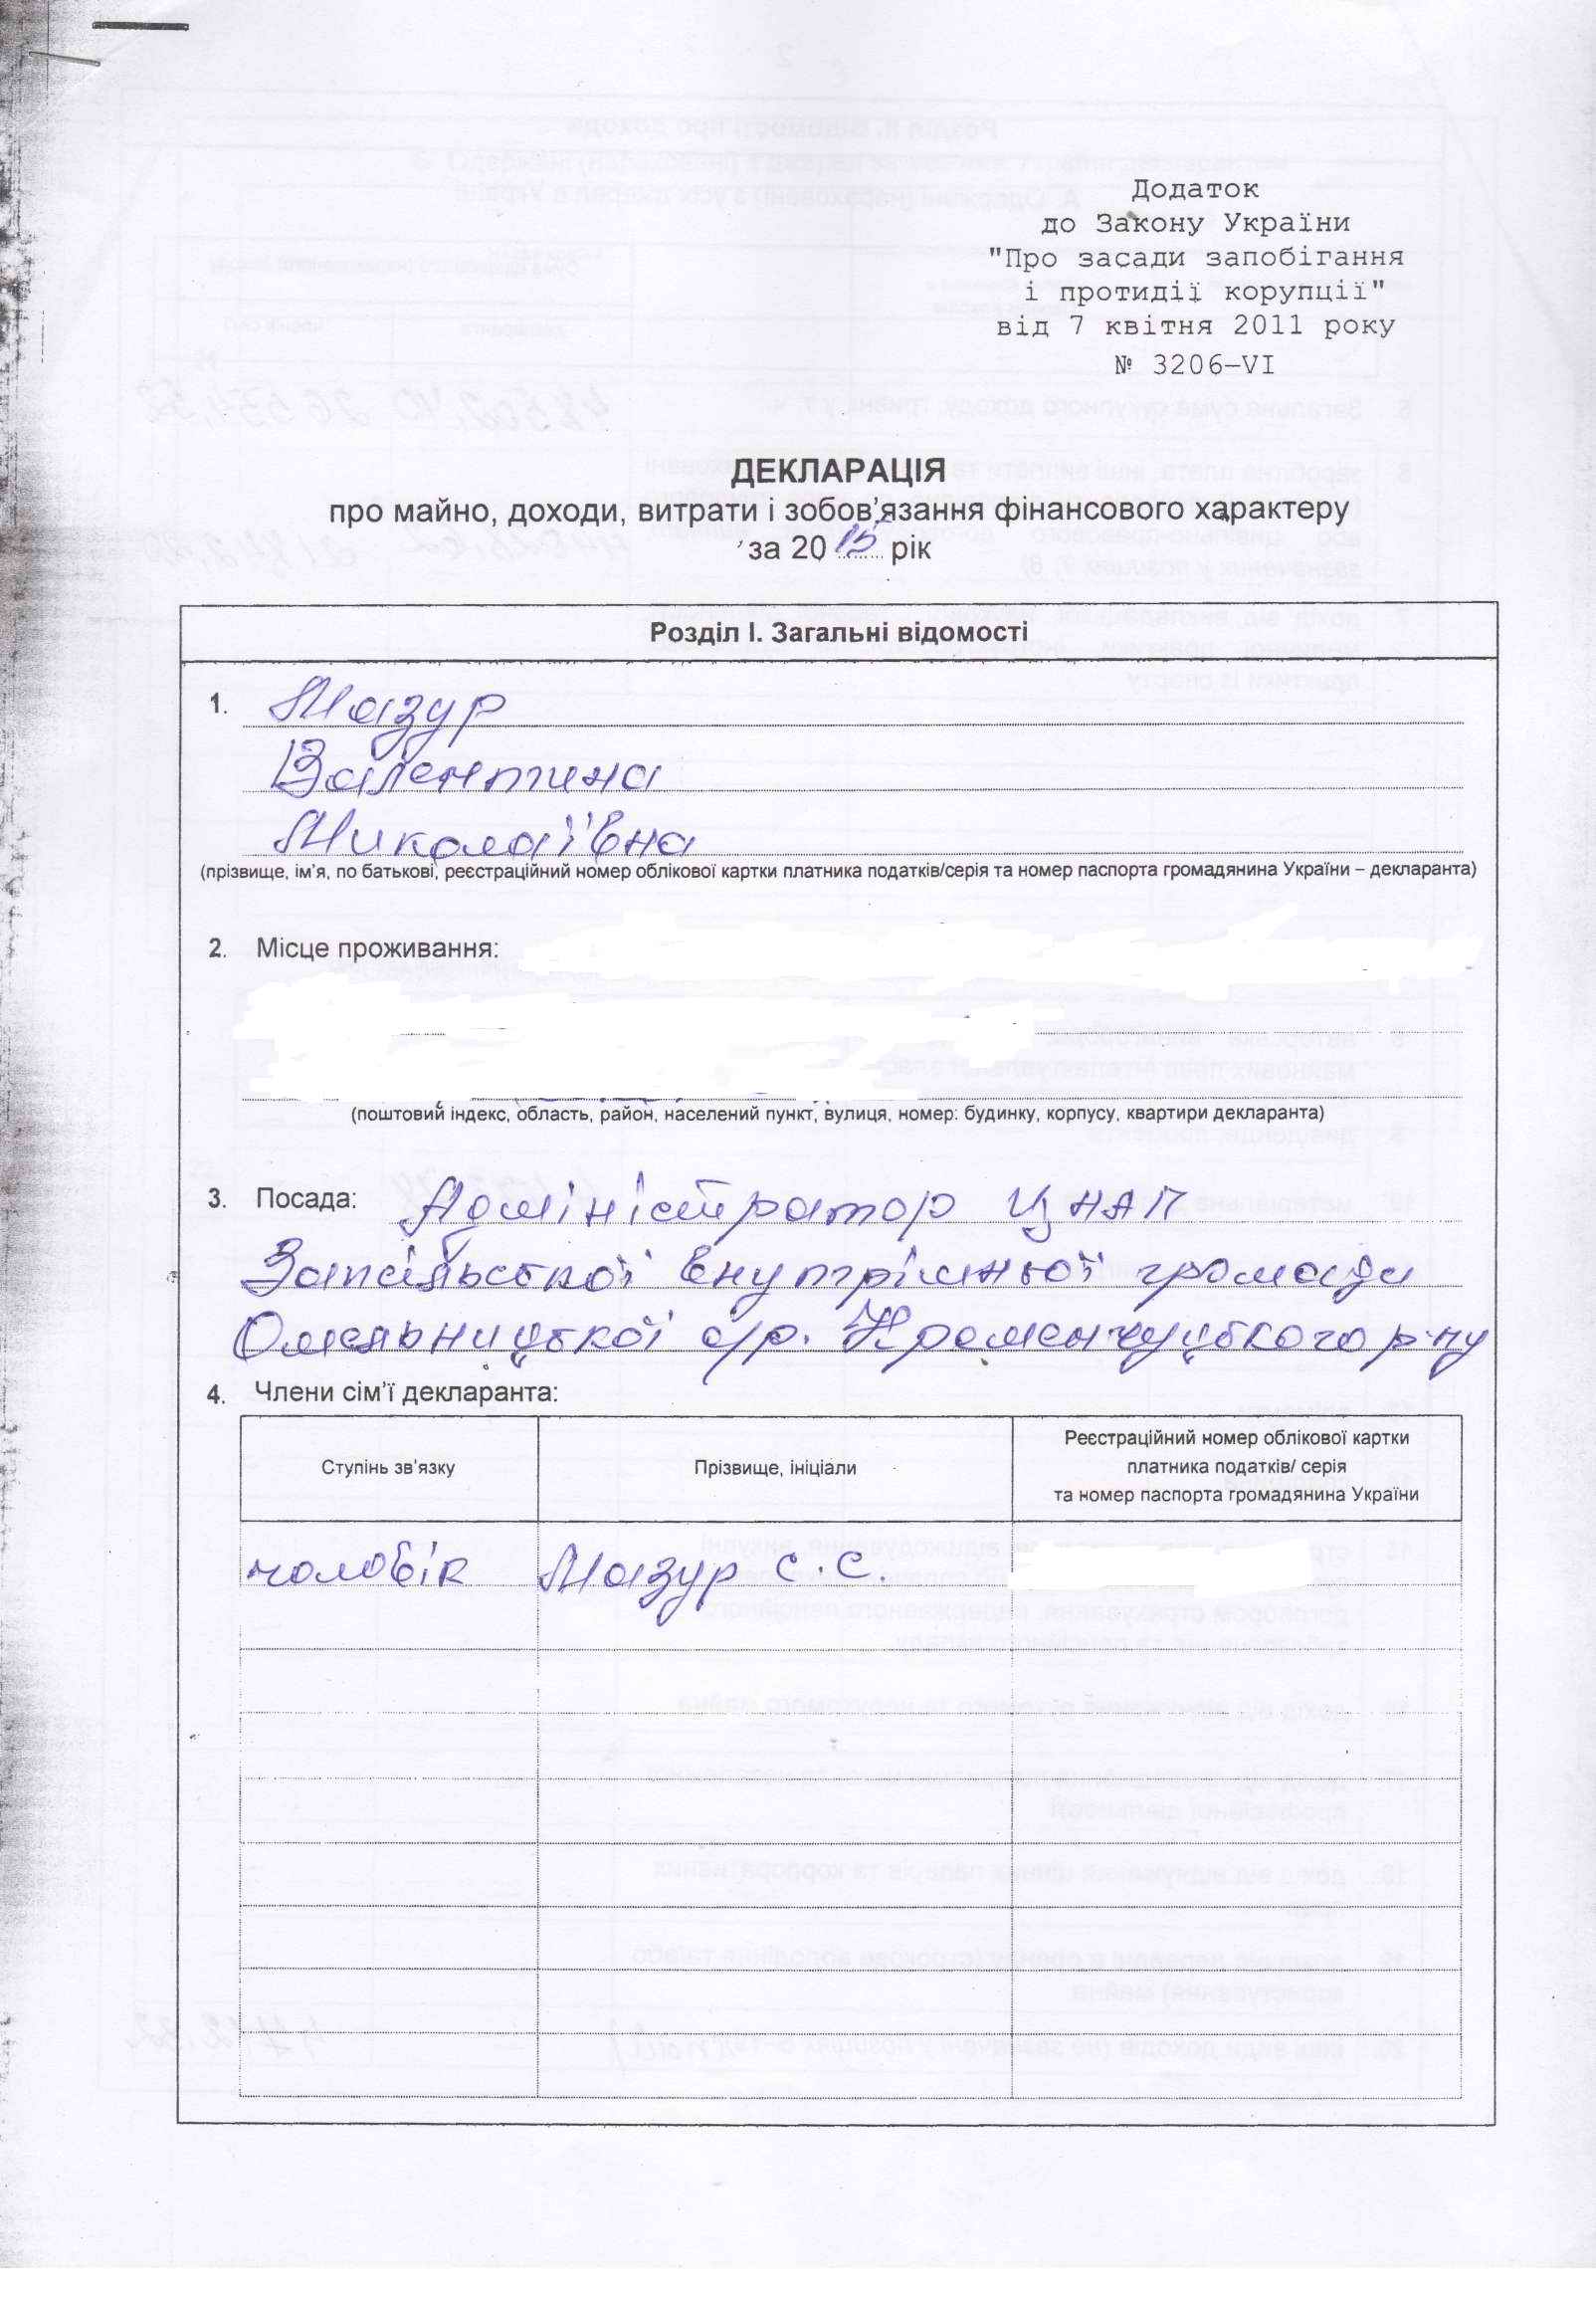 Додаток
до Закону України
"Про засади запобігання
і протидії корупції"
від 7 квітня 2011 року
№ 3206-VI
ДЕКЛАРАЦІЯ
про майно, доходи, витрати і зобов'язання фінансового характеру
за 2015 рік
Розділ I. Загальні відомості
1. Мазур
Валентина
Миколаївна
(прізвище, ім'я, по батькові, реєстраційний номер облікової картки платника податків/серія та номер паспорта громадянина України – декларанта)
2. Місце проживання:
(поштовий індекс, область, район, населений пункт, вулиця, номер: будинку, корпусу, квартири декларанта)
3. Посада: Адміністратор ЦНАП
Запсільської внутрішньої громади
Омельницької с/р. Кременчуцького р-ну
4. Члени сім'ї декларанта:
Ступінь зв'язку Прізвище, ініціали Реєстраційний номер облікової картки
платника податків/ серія
та номер паспорта громадянина України
чоловік Мазур С.С.